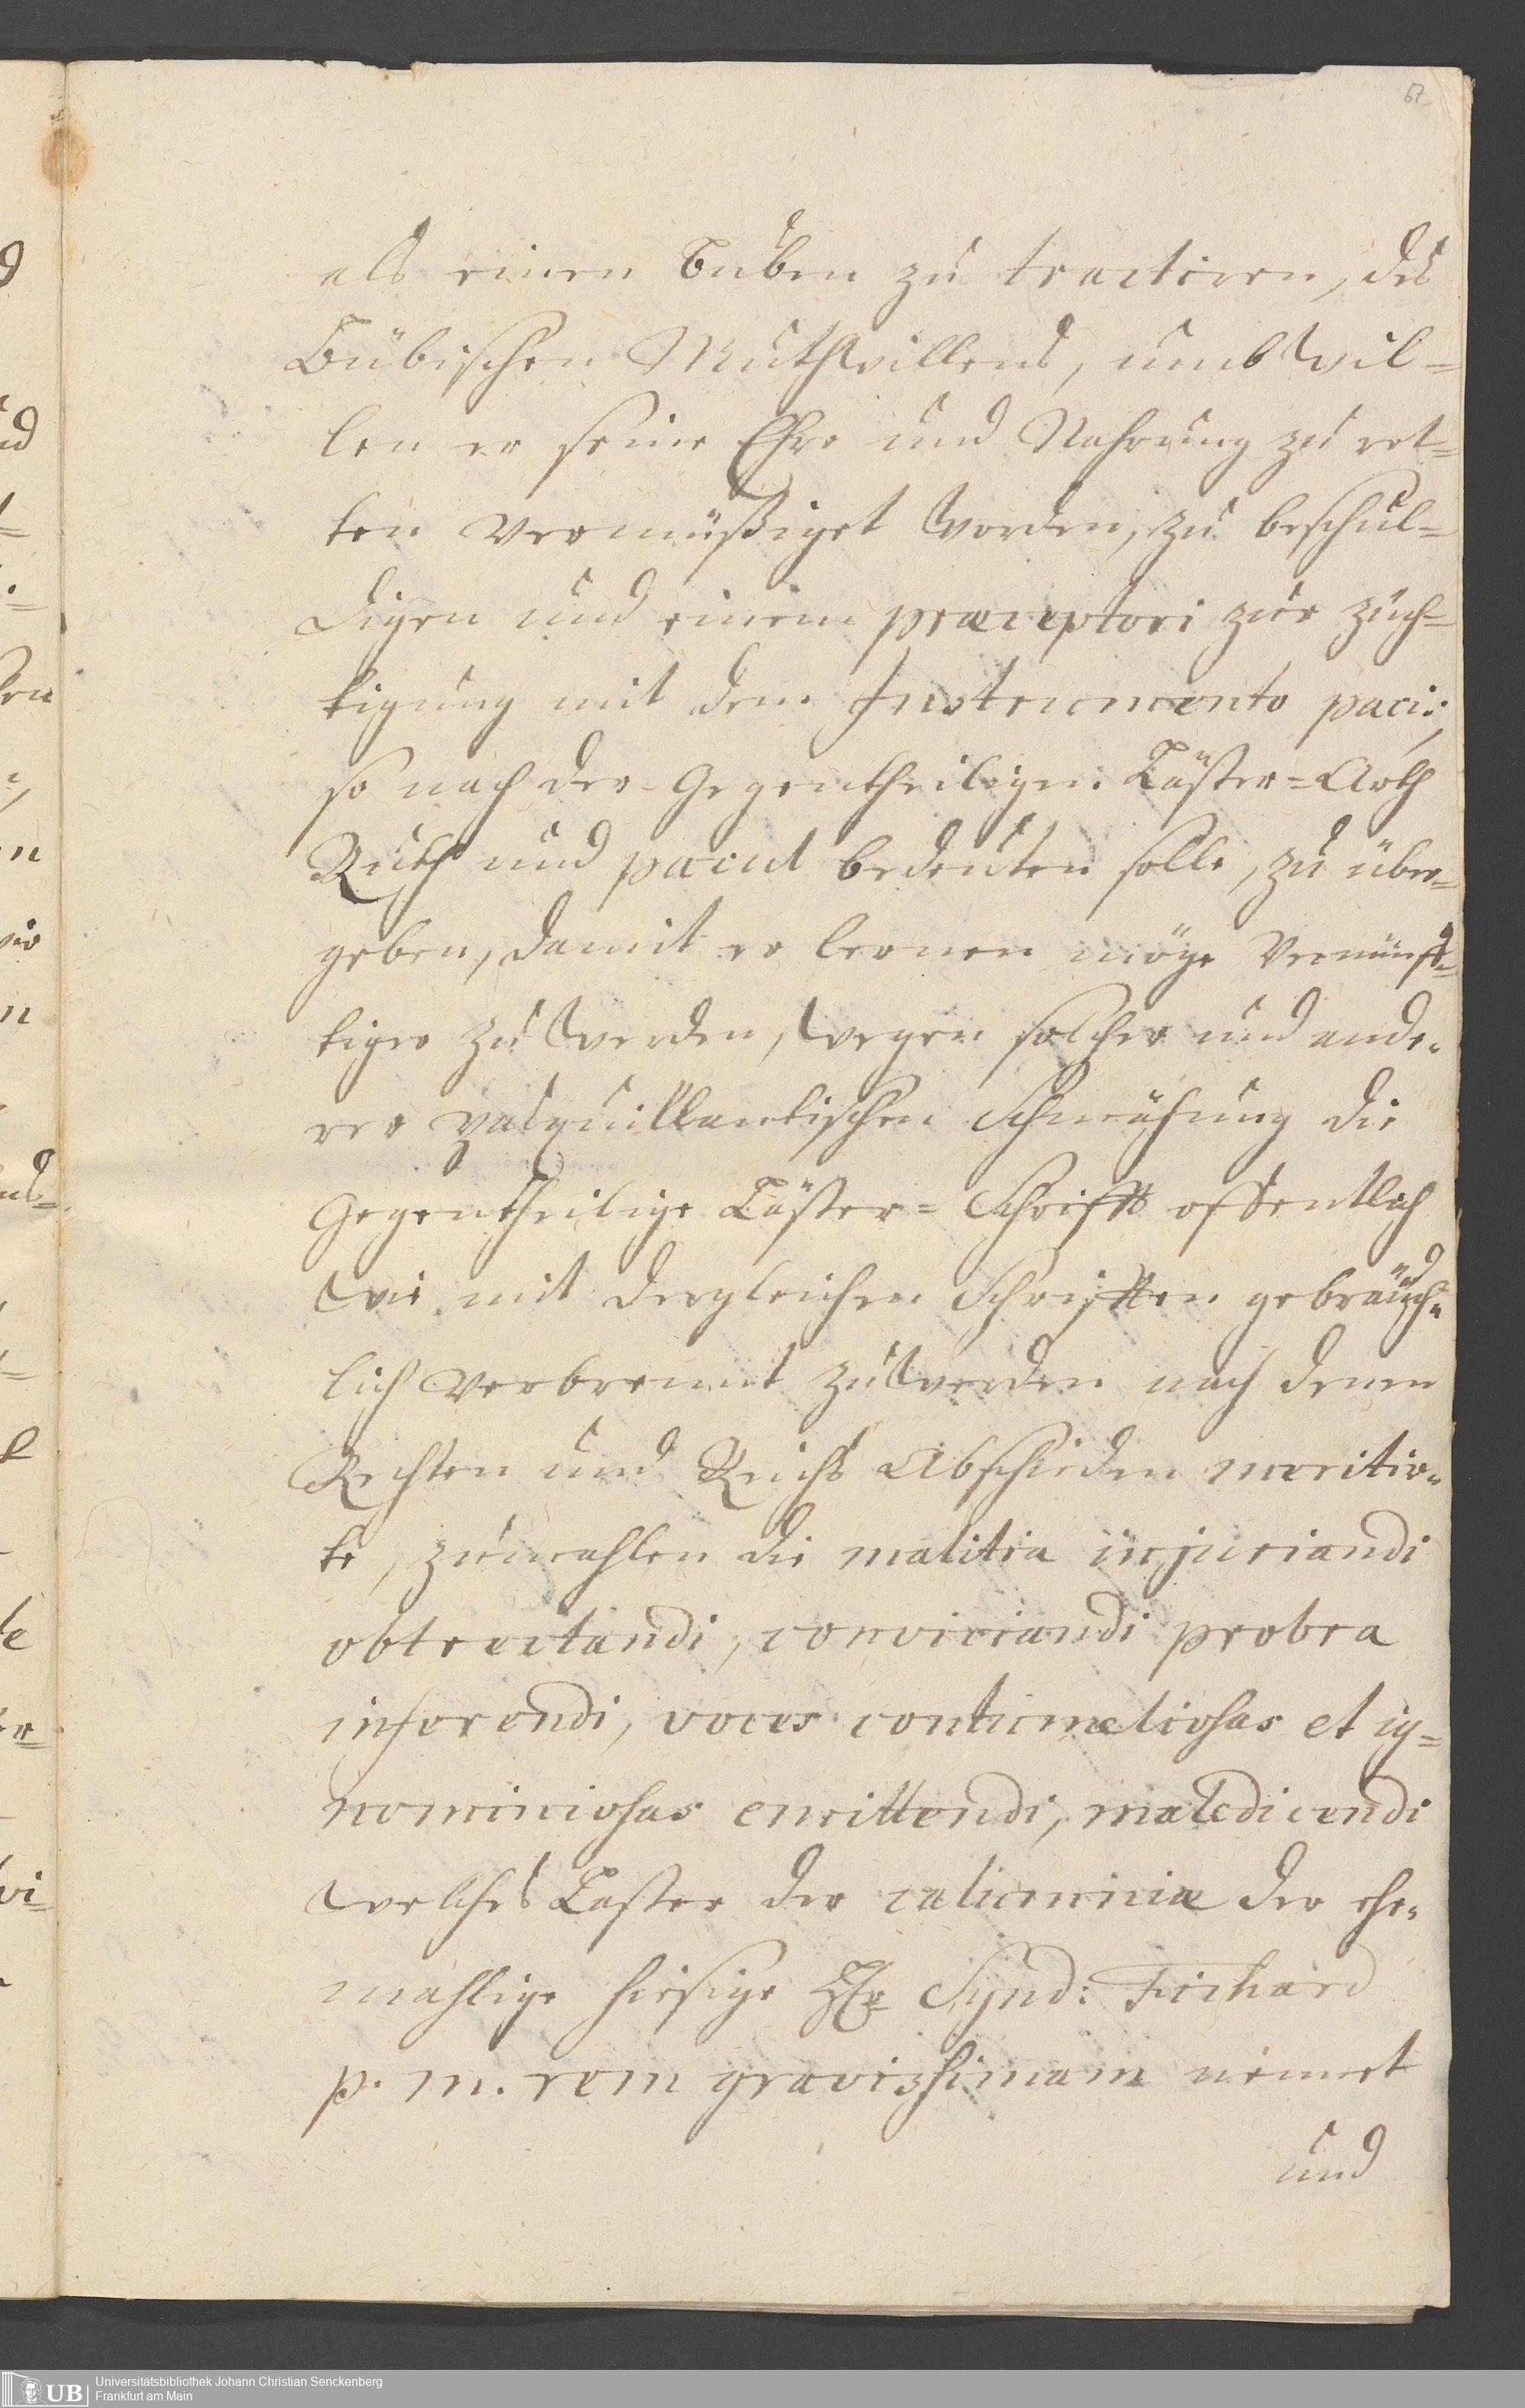 67
als einen Buben zu tractiren, des
Bübischen Muthwillens, umb wil=
len er seine Ehre und Nahrung zu ret=
ten vermüßiget worden, zu beschul=
digen und einem præceptori zur züch=
tigung mit dem Instrumento pacis,
so nach der Gegentheiligen Läster=Arth
Ruth und pacul bedeuten solle, zu über=
geben, damit er lernen möge vernünff=
tiger zu werden, wegen solcher und ande=
rer pasquillantischen Schmähung die
Gegentheilige Läster=Schrifft offentlich
wie mit dergleichen Schrifften gebräuch=
lich verbrennt zu werden nach denen
Rechten und Reichs Abschieden meritir=
te, zumahlen die malitia injuriandi
obtrectandi, conviciandi probra
inferendi, voces contumeliosas et ig=
nominiosas emittendi, maledicendi
welches Laster der calumniæ der ehe=
mahlige hiesige Hr Synd: Fichard
p. m. rem gravissimam nennet
und
Universitätsbibliothek Johann Christian Senckenberg
Frankfurt am Main
UB